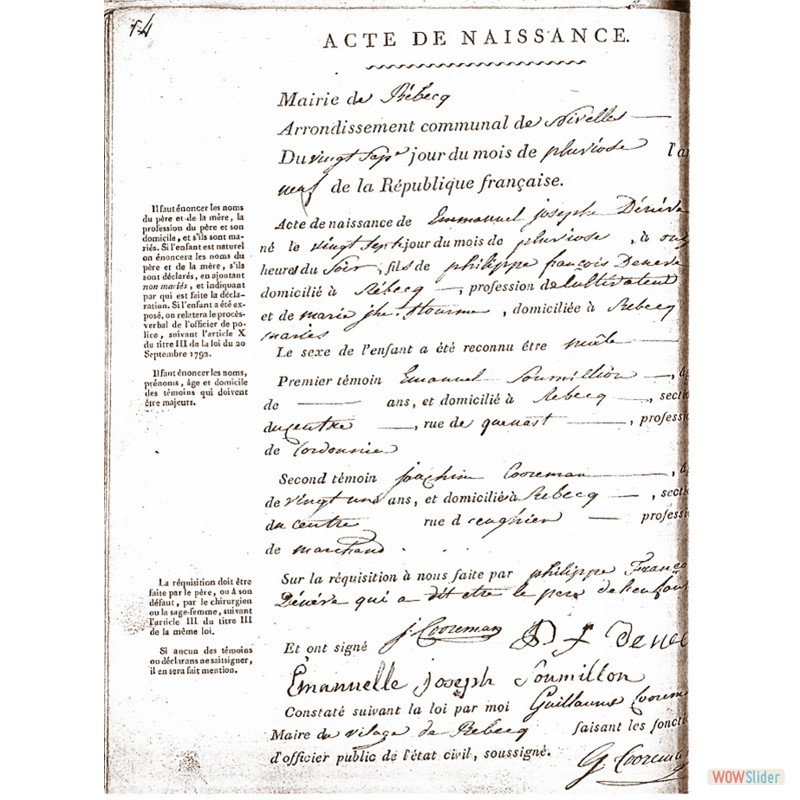 54
ACTE DE NAISSANCE.
Mairie de Rébecq
Arrondissement communal de Nivelles
Du vingt sept jour du mois de pluviose l'a
neuf de la République française.
Acte de naissance de Emmanuel joseph Dénéve
né le vingt sept jour du mois de pluviose, à onz
heures du Soir, fils de philippe françois Deneve
domicilié à Rébecq, profession de Cultivateur
et de marie jhe. Stourme, domiciliée à Rebecq
mariés
Le sexe de l'enfant a été reconnu être mâle
Premier témoin Emanuel Soumillion, â
de ans, et domicilié à Rebecq, sect
du centre, rue de quenast, professi
de Cordonnier
Second témoin joachim Cooreman, â
de vingt uns ans, et domicilié à Rebecq, secti
du centre rue d'enghien professi
de marchand
Sur la réquisition à nous faite par philippe Franço
Dénéve qui a dit etre le pere de l'enfant
Et ont signé j. Cooreman P. f denev
Emanuelle joseph Soumillon
Constaté suivant la loi par moi Guillaume Coorem
Maire du vilage de Rebecq faisant les foncti
d'officier public de l'état civil, soussigné.
G. Cooreman
Il faut énoncer les noms
du père et de la mère, la
profession du père et son
domicile, et s'ils sont ma-
riés. Si l'enfant est naturel
on énoncera les noms du
père et de la mère, s'ils
sont déclarés, en ajoutant
non mariés, et indiquant
par qui est faite la décla-
ration. Si l'enfant a été ex-
posé, on relatera le procès-
verbal de l'officier de po-
lice, suivant l'article X
du titre III de la loi du 20
Septembre 1792.
Il faut énoncer les noms,
prénoms, âge et domicile
des témoins qui doivent
être majeurs.
La réquisition doit être
faite par le père, ou à son
défaut, par le chirurgien
ou la sage-femme, suivant
l'article III du titre III
de la même loi.
Si aucun des témoins
ou déclarans ne sait signer,
il en sera fait mention.
WOWSlider